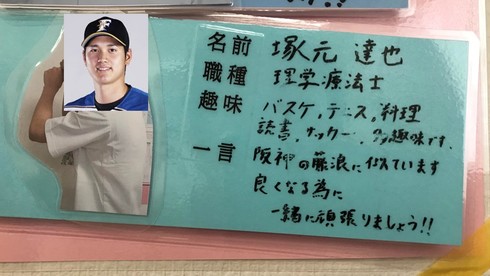 名前 塚元 達也
職種 理学療法士
趣味 バスケ,テニス,料理
読書,サッカー,多趣味です.
一言 阪神の藤浪に似ています
良くなる為に
一緒に頑張りましょう!!
F
!!